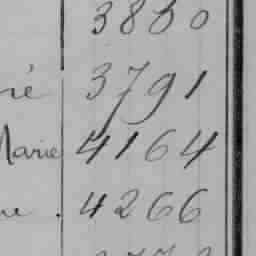 3830
né 3791
Marie 4164
ne . 4266